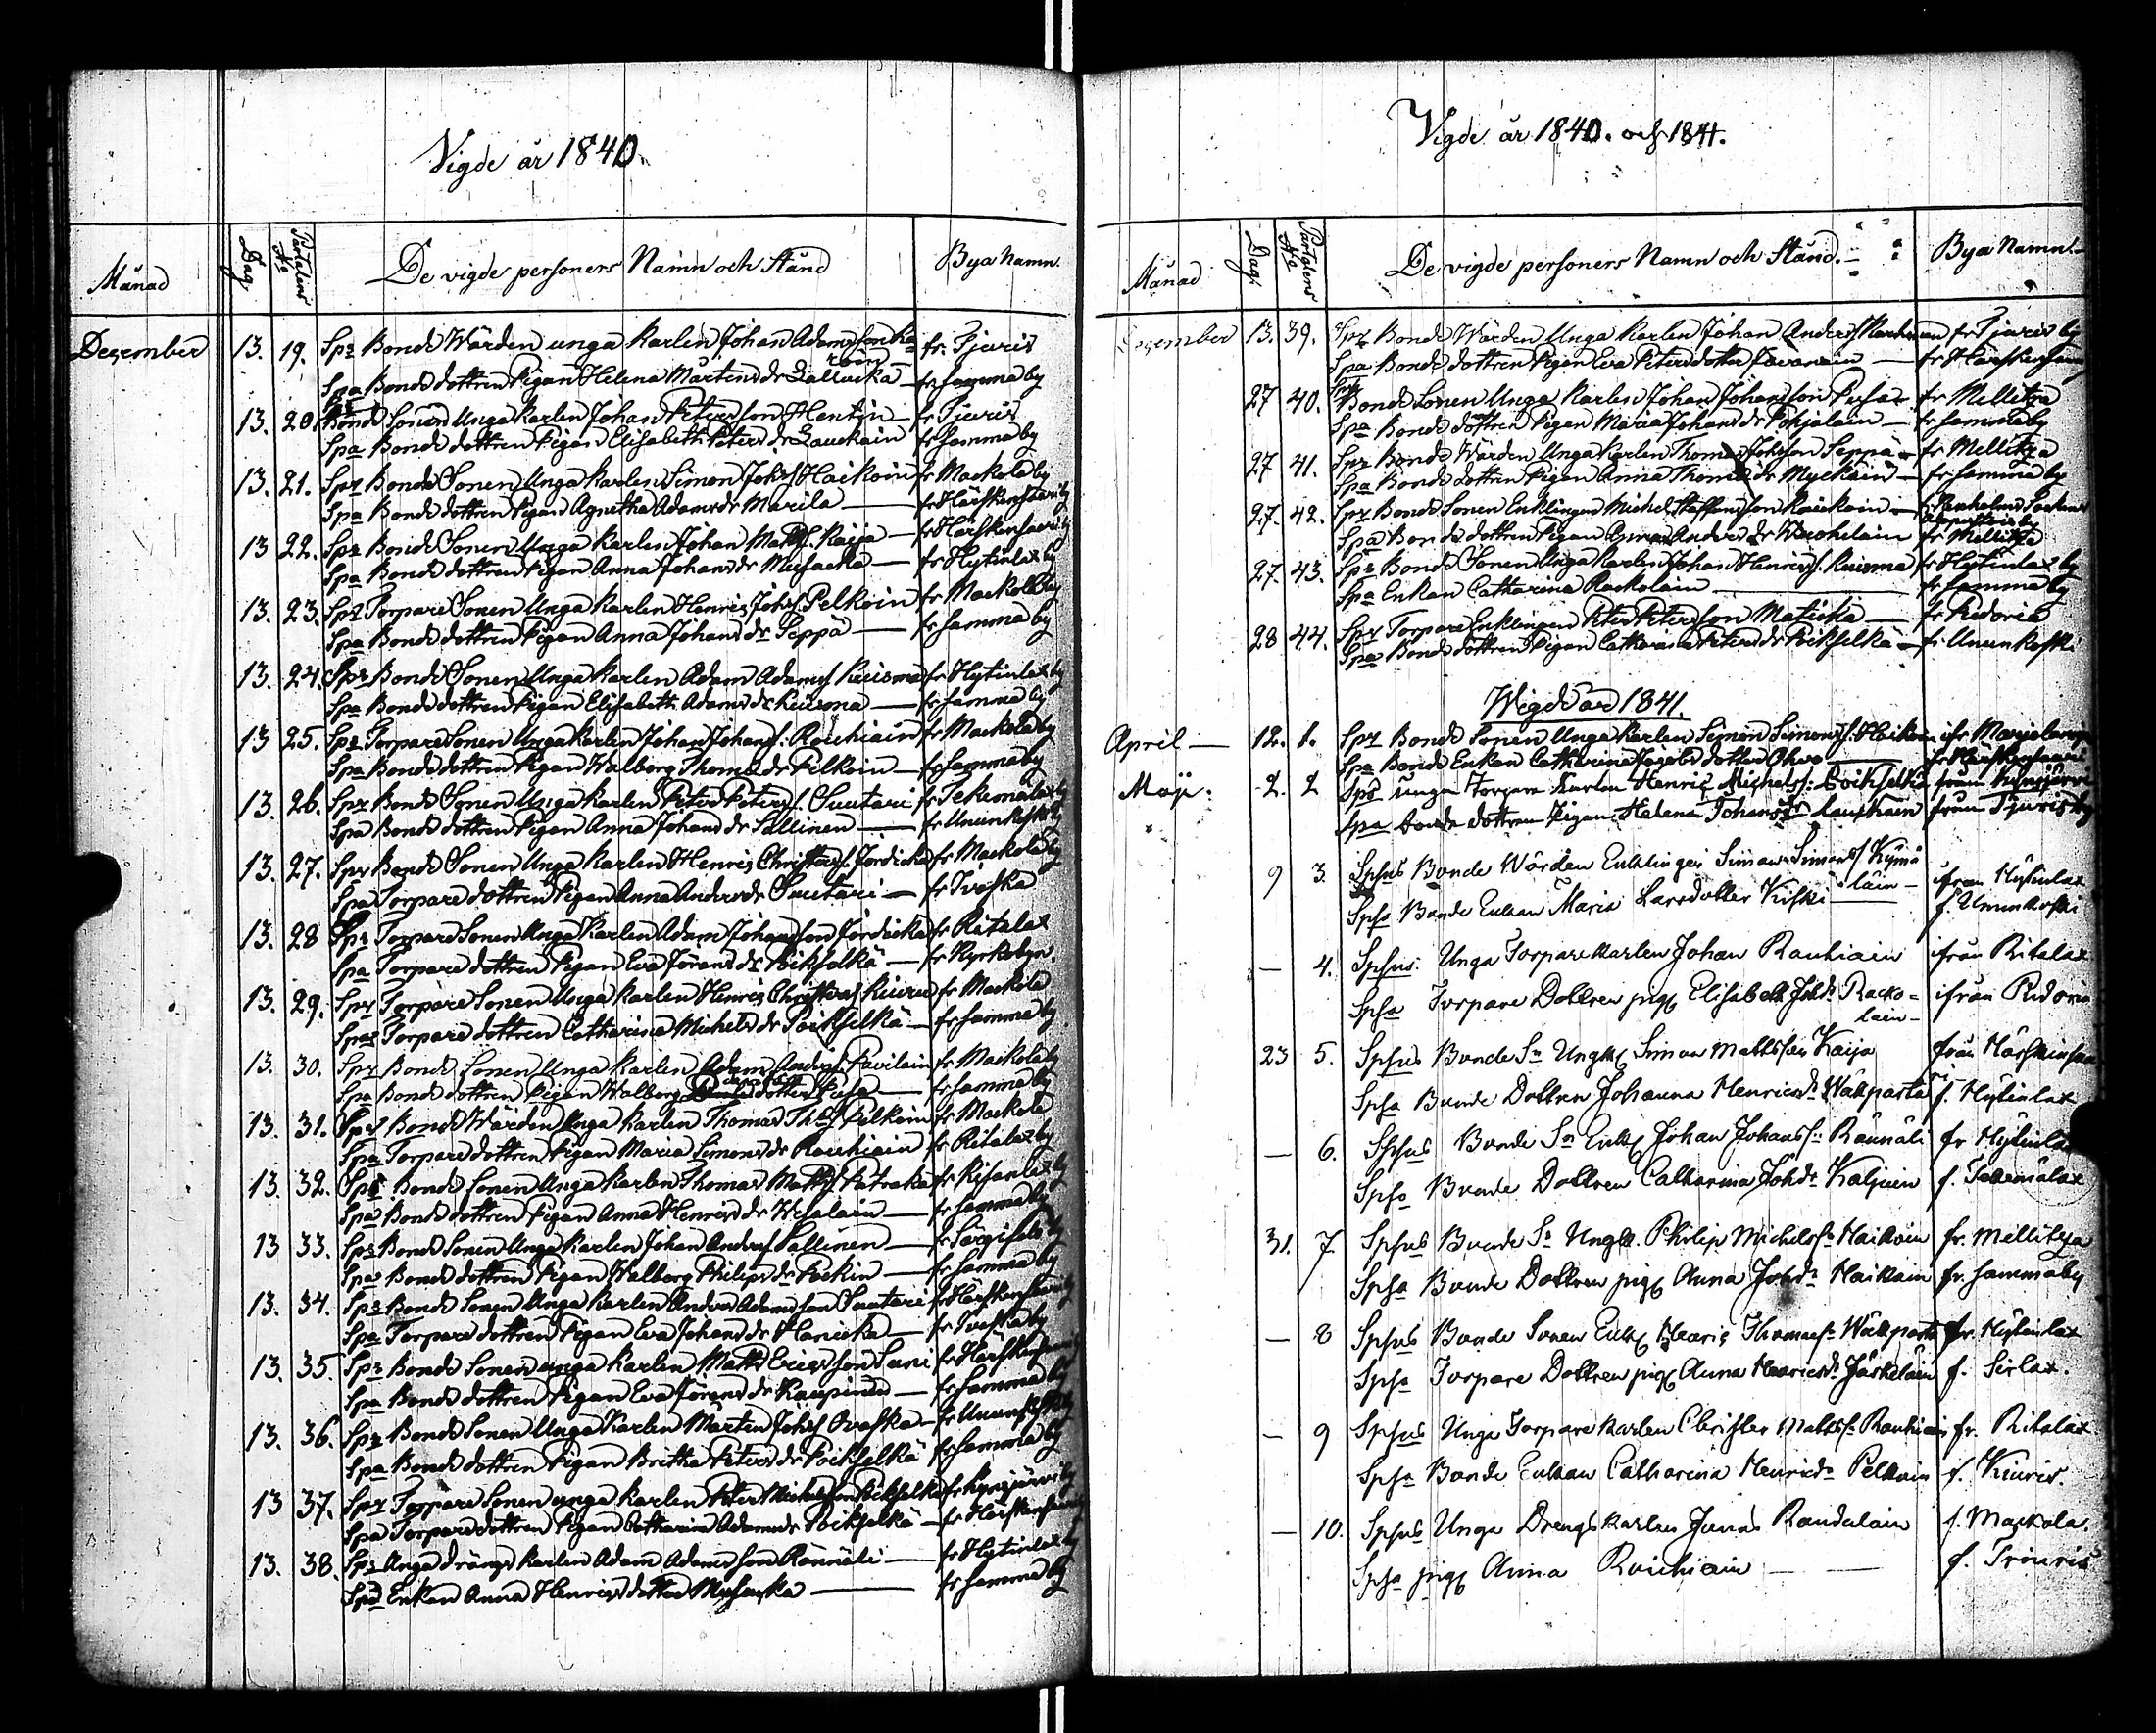 Vigde år 1840.
Månad Dag Partalens No De vigde personers Namn och Stånd Bya Namn.
Dezember 13. 19. Spr Bonde Wärden unga Karlen Johan Adamsson fr. Tjuris
Spa Bonde dottren Pigan Helena Mårtensdr fr samma by
13. 20. Bonde Sonen Unga Karlen Johan Petersson Hentin fr Tjuris
Spa Bonde dottren Pigan Elisabeth Petersdr Lauckain fr samma by
13. 21. Spr Bonde Sonen Unga Karlen Simon Johs Haikoin fr Mackola by
Spa Bonde dottren Pigan Agnetha Adamsdr Marila fr Härskensaari by
13 22. Spr Bonde Sonen Unga Karlen Johan Matts. Kaija fr Härskensaari by
Spa Bonde dottren Pigan Anna Johansdr Musacka fr Hytinlax by
13. 23. Spr Torpare Sonen Unga Karlen Henric Johs. Pelkoin fr Mackola by
Spa Bonde dottren Pigan Anna Johansdr Seppä fr samma by
13. 24. Spr Bonde Sonen Unga Karlen Adam Adams Kuisma fr Hytinlax by
Spa Bonde dottren Pigan Elisabeth Adamsdr Kuisma fr samma by
13 25. Spr Torpare Sonen Unga Karlen Johan Johans. Rouhiain fr Mackola by
Spa Bonde dottren Pigan Walborg Thomasdr Pelkoin fr samma by
13. 26. Spr Bonde Sonen Unga Karlen Peter Peters. Suutari fr by
Spa Bonde dottren Pigan Anna Johansdr Sallinen fr Unnunkoski by
13. 27. Spr Bonde Sonen Unga Karlen Henric Christers. Jordicka fr Mackola by
Spa Torpare dottren Pigan Anna Andersdr Suutari fr Ivaska
13. 28 Spr Torpare Sonen Unga Karlen Adam Johansson Jordicka fr Ritalax
Spa Torpare dottren Pigan Eva Jöransdr Poikselkä fr Kyrkobyn.
13. 29. Spr Torpare Sonen Unga Karlen Henric Christers Kiuru fr Mackola
Spa Torpare dottren Catharina Michelsdr Poikselkä fr samma by
13. 30. Spr Bonde Sonen Unga Karlen Adam Anders. Pavilain fr Mackola by
Spa Bonde dottren Pigan Walborg dotter Pusa fr samma by
13. 31. Spr Bonde Wärden Unga Karlen Thomas Ths Pelkoin fr Mackola
Spa Torpare dottren Pigan Maria Simonsdr Rouhiain fr Ritalax by
13. 32. Spr Bonde Sonen Unga Karlen Thomas Matts Patraka fr by
Spa Bonde dottren Pigan Anna Henricsdr Wesalain fr samma by
13 33. Spr Bonde Sonen Unga Karlen Johan Anders Sallinen fr by
Spa Bonde dottren Pigan Walborg Philipsdr fr samma by
13. 34. Spr Bonde Sonen Unga Karlen Anders Adamsson Suutari fr Härskensaari by
Spa Torpare dottren Pigan Eva Johansdr Hanicka fr Ivaska by
13. 35. Spr Bonde Sonen unga Karlen Matts Ericsson Suni fr Härskensaari
Spa Bonde dottren Pigan Eva Jöransdr Kaupinen fr samma by
13. 36. Spr Bonde Sonen Unga Karlen Mårten Johs Ovaska fr Unnunkoski
Spa Bonde dottren Pigan Britha Petersdr Poikselkä fr samma by
13 37. Spr Torpare Sonen unga Karlen Peter Michelsson Poikselkä fr Kynsjärvi by
Spa Torpare dottren Pigan Catharina Adamsdr Poikselkä fr Härskensaari
13. 38. Spr Unga drängs karlen Adam Adamsson Rännäli fr Hytinlax by
Spa Enkan Anna Henricsdotter Musacka fr samma by
Vigde år 1840. och 1841.
Månad Dag Partalens No De vigde personers Namn och Stånd. Bya Namn.
Dezember 13. 39. Spr Bonde Wärden Unga Karlen Johan Anders fr Tjuris by
Spa Bonde dottren Pigan Eva Petersdotter Tavanain fr Härskensaari
27 40. Spr Bonde Sonen Unga Karlen Johan Johansson Pusa fr Mellitza
Spa Bonde dottren Pigan Maria Johansdr Pohjalain fr samma by
27 41. Spr Bonde Wärden Unga Karlen Thomas Johsson Seppä fr Mellitza
Spa Bonde dottren Pigan Anna Thomasdr Myckäin fr samma by
27. 42. Spr Bonde Sonen Enklingen Michel Staffansson
Spa Bonde dottren Pigan Andersdr fr Mellitza
27. 43. Spr Bonde Sonen Unga Karlen Johan Henrics. Kuisma fr Hytinlax by
Spa Enkan Catharina Rackolain fr samma by
28 44. Spr Torpare Enklingen Peter Petersson Maticka fr Ridoria
Spa Bonde dottren Pigan Catharina Petersdr Poikselkä fr Unnunkoski
Wigde år 1841.
April 12. 1. Spr Bonde Sonen Unga Karlen Simon Simons. Haikoin ifr
Spa Bonde Enkan Catharina dotter Okva fr Härskensaari
Maji. 2. 2 Sps unga Torpare Karlen Henric Michelss: Poikselkä från Kynsjärvi
Spa bonde dottren Pigan Helena Johansdr Lauckain från Tjuris by
9 3. Spsus Bonde Wärden Enklingen Simon Simonss Kymä
läin ifrån Hytinlax
Spsa Bonde Enkan Maria Larsdotter Kiski f. Unnunkoski
— 4. Spsus. Unga Torpare karlen Johan Rauhiain ifrån Ritalax
Spsa Torpare Dottren pig: Elisabeth Johdr Racko=
lain ifrån Ridoria
23 5. Spsus Bonde Sn Ungk: Simon Mattsson Kaija från Härskensaari
Spsa Bonde Dottren Johanna Henricsdr Wäkiparta f. Hytinlax
— 6. Spsus Bonde Sn Enkl: Johan Johanss: Rännäli fr Hytinlax
Spsa Bonde Dottren Catharina Johdr Kaljuin f.
31. 7 Spsus Bonde Sn Ungk. Philip Michelssn Haikoin fr. Mellitza
Spsa Bonde Dottren pig: Anna Johdr Haikoin fr. samma by
— 8 Spsus Bonde Sonen Enkl: Henric Thomassn Wäkiparta fr. Hytinlax
Spsa Torpare Dottren pig: Anna Henricsdr Jäskeläin f. Sirlax.
— 9 Spsus Unga Torpare karlen Christer Mattssn Rauhiain fr. Ritalax
Spsa Bonde Enkan Catharina Henricsdr Pelkoin f. Kiuris.
— 10. Spsus Unga Drengs karlen Jonas Randalain f. Mackola.
Spsa pig: Anna Rouhiain f. Tiuris